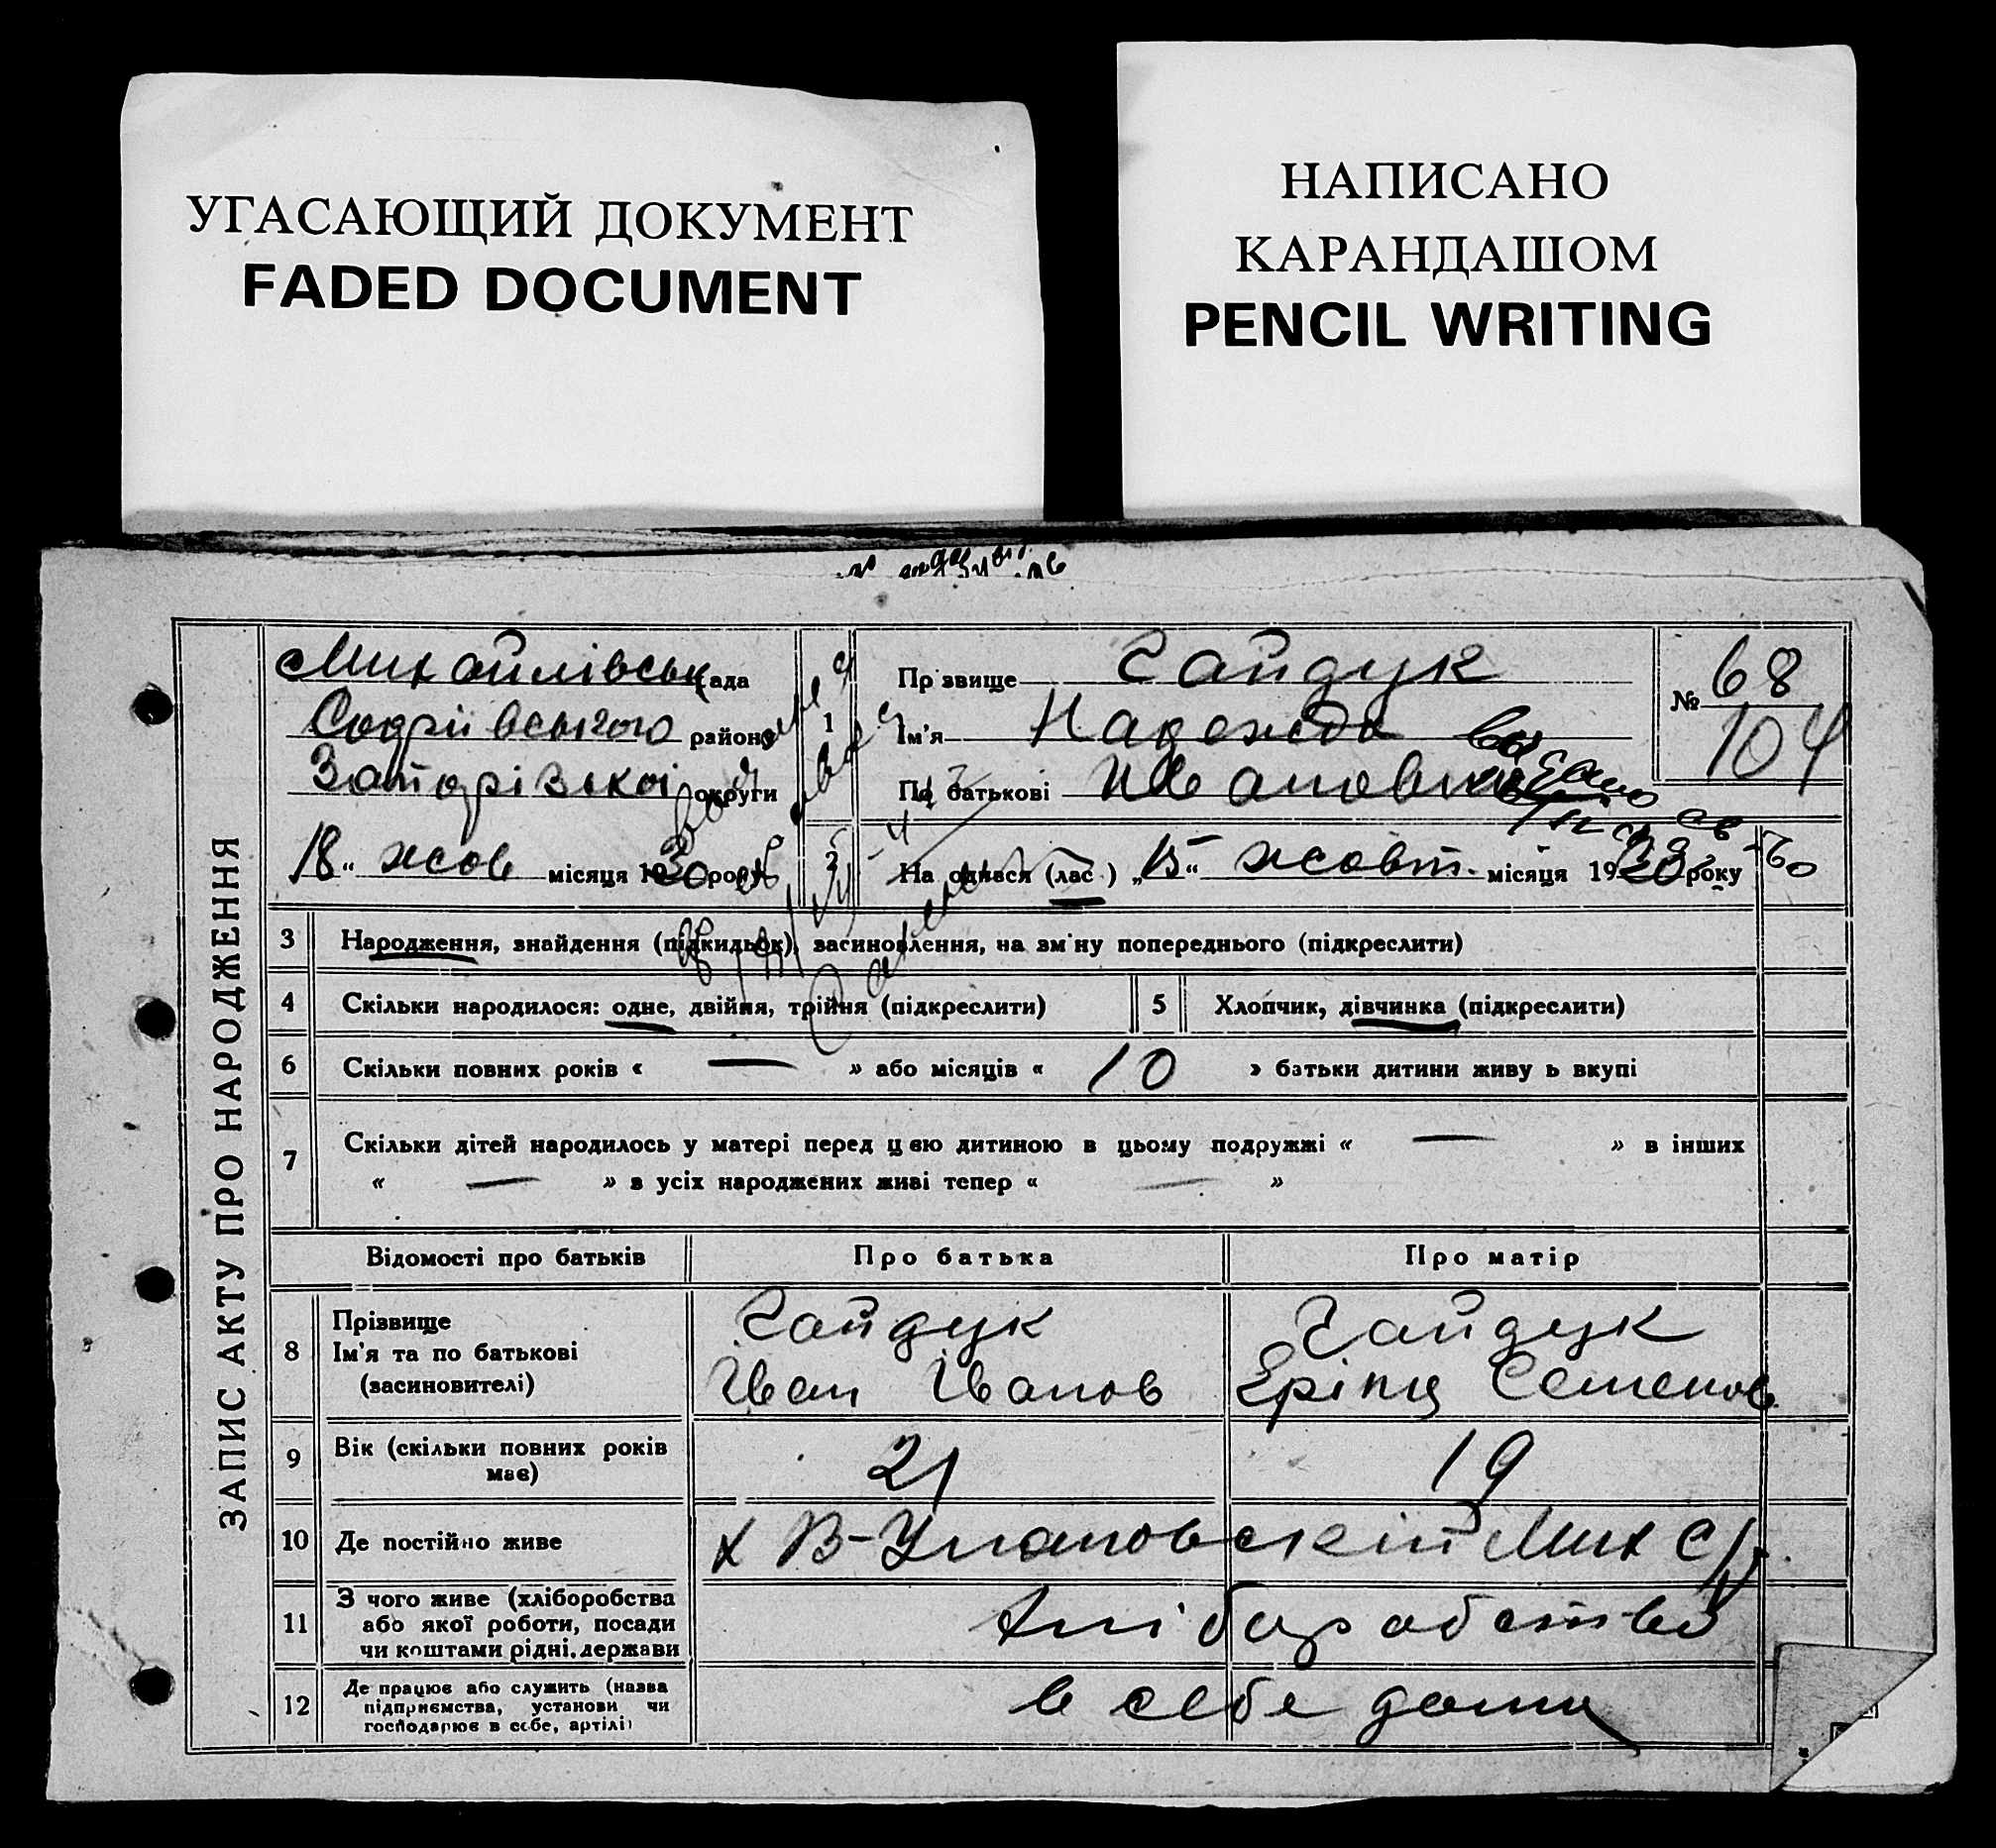 УГАСАЮЩИЙ ДОКУМЕНТ
FADED DOCUMENT
НАПИСАНО
КАРАНДАШОМ
PENCIL WRITING
ЗАПИС АКТУ ПРО НАРОДЖЕННЯ
Михайлівськ рада
району
Запорізької округи
18 " жов місяця 1930 року
1 Прізвище Гайдук
Ім'я Надежда
По батькові Ивановна
№ 68
104
2 На одилася (лас ) „ 15 " жовт. місяця 1930 року
3 Народження, знайдення (підкидьок), засиновлення, на зміну попереднього (підкреслити)
4 Скільки народилося: одне, двійня, трійня (підкреслити) 5 Хлопчик, дівчинка (підкреслити)
6 Скільки повних років « — » або місяців « 10 » батьки дитини живу ь вкупі
7 Скільки дітей народилось у матері перед цією дитиною в цьому подружжі « — » в інших
« — » в усіх народжених живі тепер « — »
Відомості про батьків Про батька Про матір
8 Прізвище
Ім'я та по батькові
(засиновителі)
Гайдук Гайдук
Іван Іванов Семенов
9 Вік (скільки повних років
має)
21 19
10 Де постійно живе х В- Мих с/р.
11 З чого живе (хліборобства
або якої роботи, посади
чи коштами рідні, держави
хліборобство
12 Де працює або служить (назва
підприємства, установи чи
господарює в себе, артілі)
в себе дома